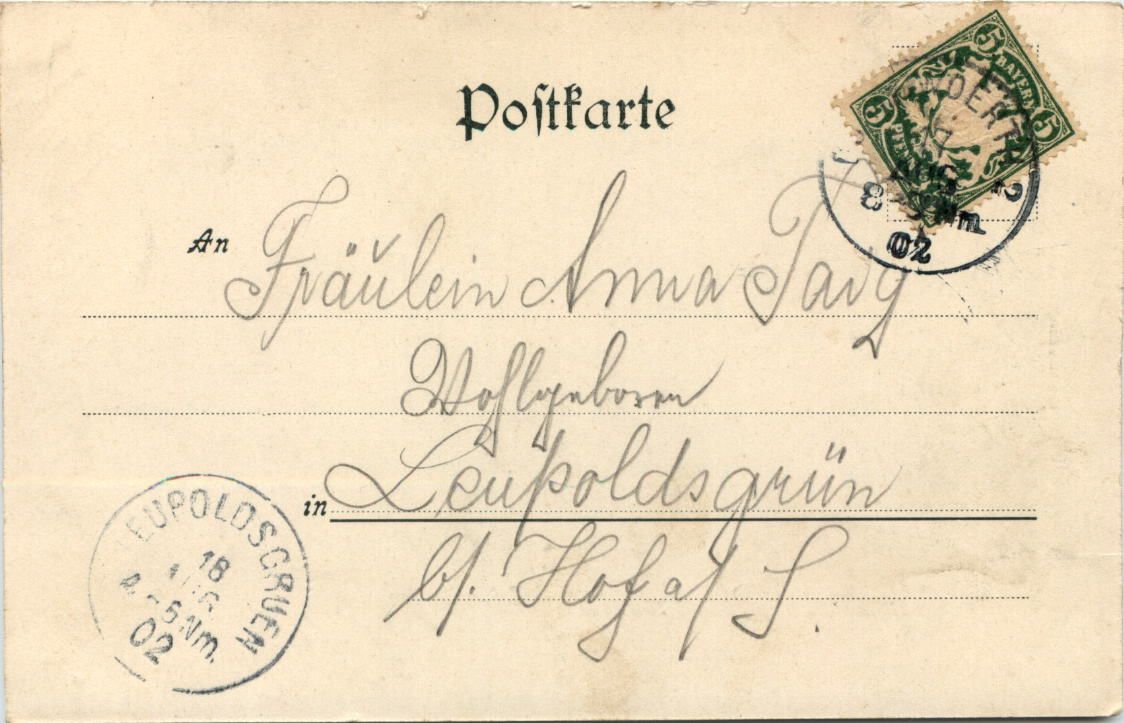 Postkarte
5 BAYERN 5
5 PFENNIG
17
AUG
8 Nm. 2
02
An Fräulein Anna
Wohlgeboren
in Leupoldsgrün
b/ Hof a/ S.
LEUPOLDSGRUEN
18
AUG
4-5 Nm.
02